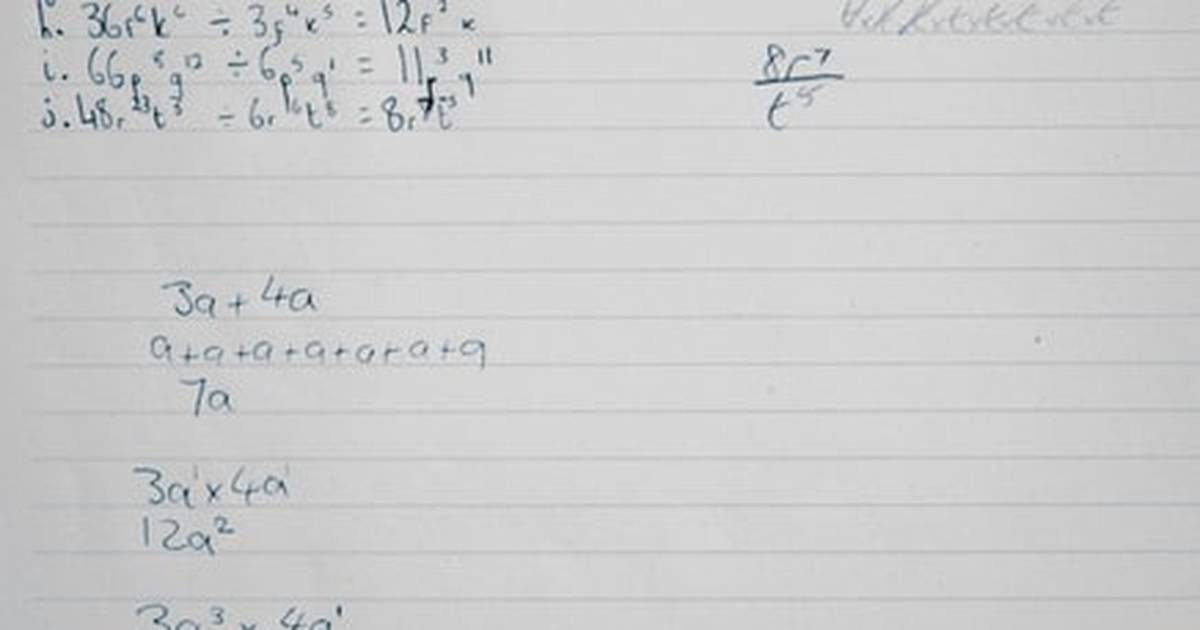 h. 36r⁶k⁶ ÷ 3r⁴k⁵ = 12r² k
i. 66p⁸q¹² ÷ 6p⁵q¹ = 11p³q¹¹
j. 48r²³t³ ÷ 6r¹⁶t⁸ = 8r⁷t⁻⁵
8r⁷
t⁵
3a + 4a
a+a+a+a+a+a+a
7a
3a¹ x 4a¹
12a²
3a³ x 4a¹